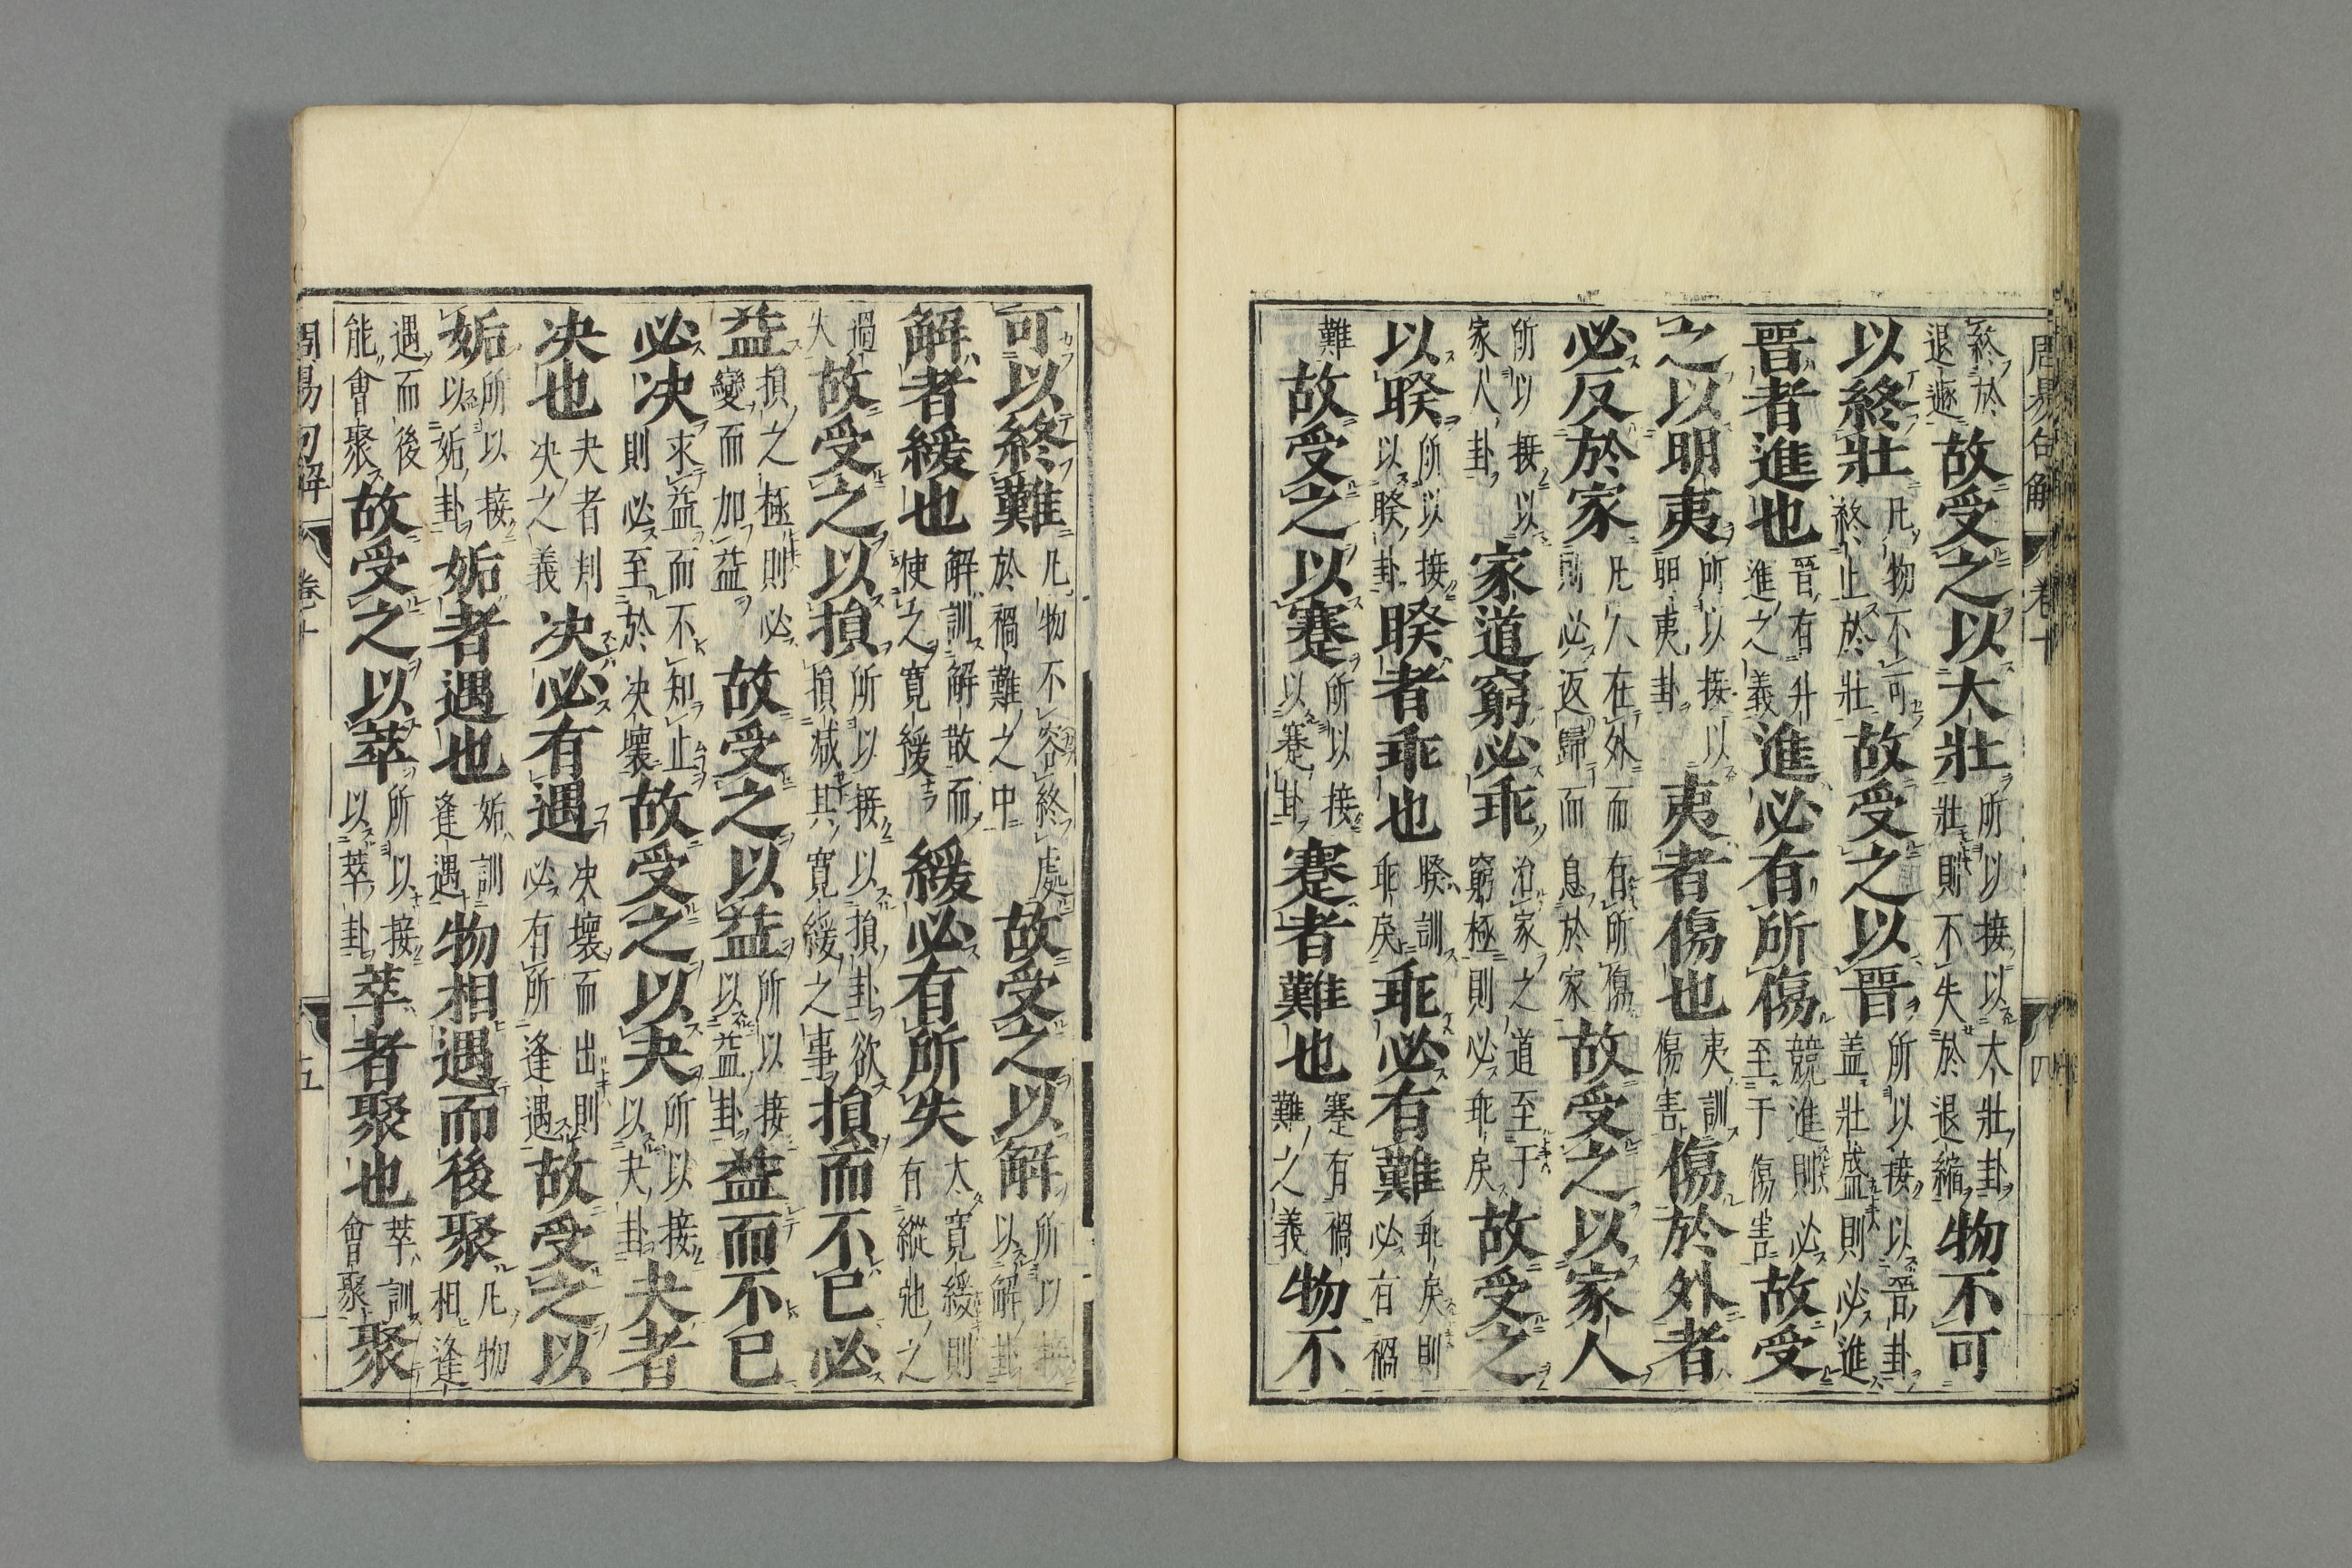 周易句解 卷十 四
終於退遯故受之以大壯所以接以大壯卦壯則不失於退縮物不可
以終壯凡物不可終止於壯故受之以晉所以接以晉卦蓋壯盛則必進
晉者進也晉有升進之義進必有所傷競進則必至于傷害故受
之以明夷所以接以明夷卦夷者傷也夷訓傷害傷於外者
必反於家凡人在外而有所傷則必返歸而息於家家故受之以家人
所以接以家人卦家道窮必乖治家之道至于窮極則必乖戾故受之
以睽所以接以睽卦睽者乖也睽訓乖戾乖必有難乖戾則必有禍
難故受之以蹇所以接以蹇卦蹇者難也蹇有禍難之義物不
可以終難凡物不容終處於禍難之中故受之以解所以接以解卦
解者緩也解訓解散而使之寛緩緩必有所失太寛緩則有縱弛之
過失故受之以損所以接以損卦欲損减其寛緩之事損而不已必
益損之極則必變而加益故受之以益所以接以益卦益而不已
必决求益而不知止則必至於决壞故受之以夬所以接以夬卦夬者
决也夬者判决之義决必有遇决壞而出則必有所逢遇故受之以
姤所以接以姤卦姤者遇也姤訓逢遇物相遇而後聚凡物相逢
遇而後能會聚故受之以萃所以接以萃卦萃者聚也萃訓會聚聚
周易句解 卷十 五